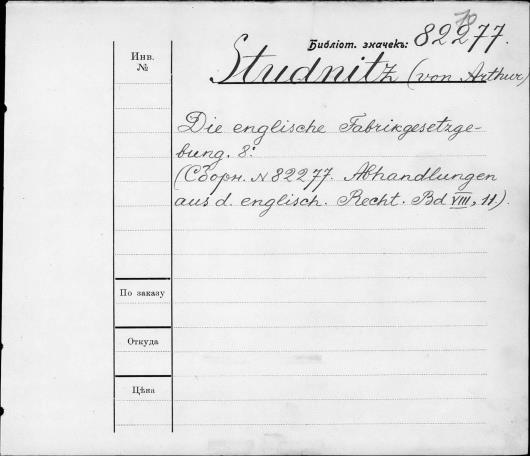 70
Библіот. значекъ: 82277.
Инв.
№
Studnitz (von Arthur)
Die englische Fabrikgesetzge-
bung. 8º.
(Сборн. N 82277. Abhandlungen
aus d. englisch. Recht. Bd VIII, 11).
По заказу
Откуда
Цѣна